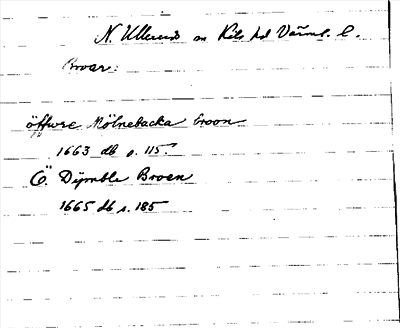 N. Ullerud sn Kils hd Värml. l.
Broar:
öffwre Mölnebacka broon
1663 db s. 115
Ö. Dÿmble Broen
1665 db s. 185